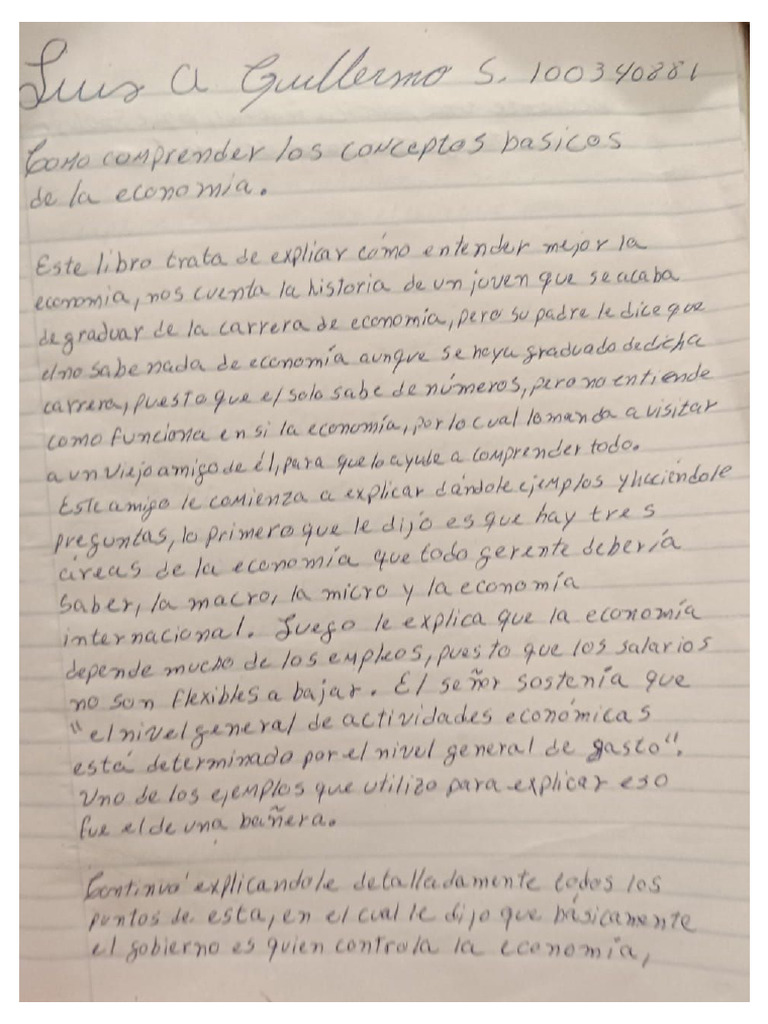 Luis A Guillermo S. 100340881
Como comprender los conceptos basicos
de la economia.
Este libro trata de explicar cómo entender mejor la
economia, nos cuenta la historia de un joven que se acaba
de graduar de la carrera de economía, pero su padre le dice que
el no sabe nada de economía aunque se haya graduado de dicha
carrera, puesto que el solo sabe de números, pero no entiende
como funciona en si la economía, por lo cual lo manda a visitar
a un viejo amigo de él, para que lo ayude a comprender todo.
Este amigo le comienza a explicar dándole ejemplos y haciéndole
preguntas, lo primero que le dijo es que hay tres
áreas de la economía que todo gerente debería
saber, la macro, la micro y la economía
internacional. Luego le explica que la economía
depende mucho de los empleos, puesto que los salarios
no son flexibles a bajar. El señor sostenía que
"el nivel general de actividades económicas
está determinado por el nivel general de gasto".
Uno de los ejemplos que utilizo para explicar eso
fue el de una bañera.
Continuó explicandole detalladamente todos los
puntos de esta, en el cual le dijo que básicamente
el gobierno es quien controla la economía,